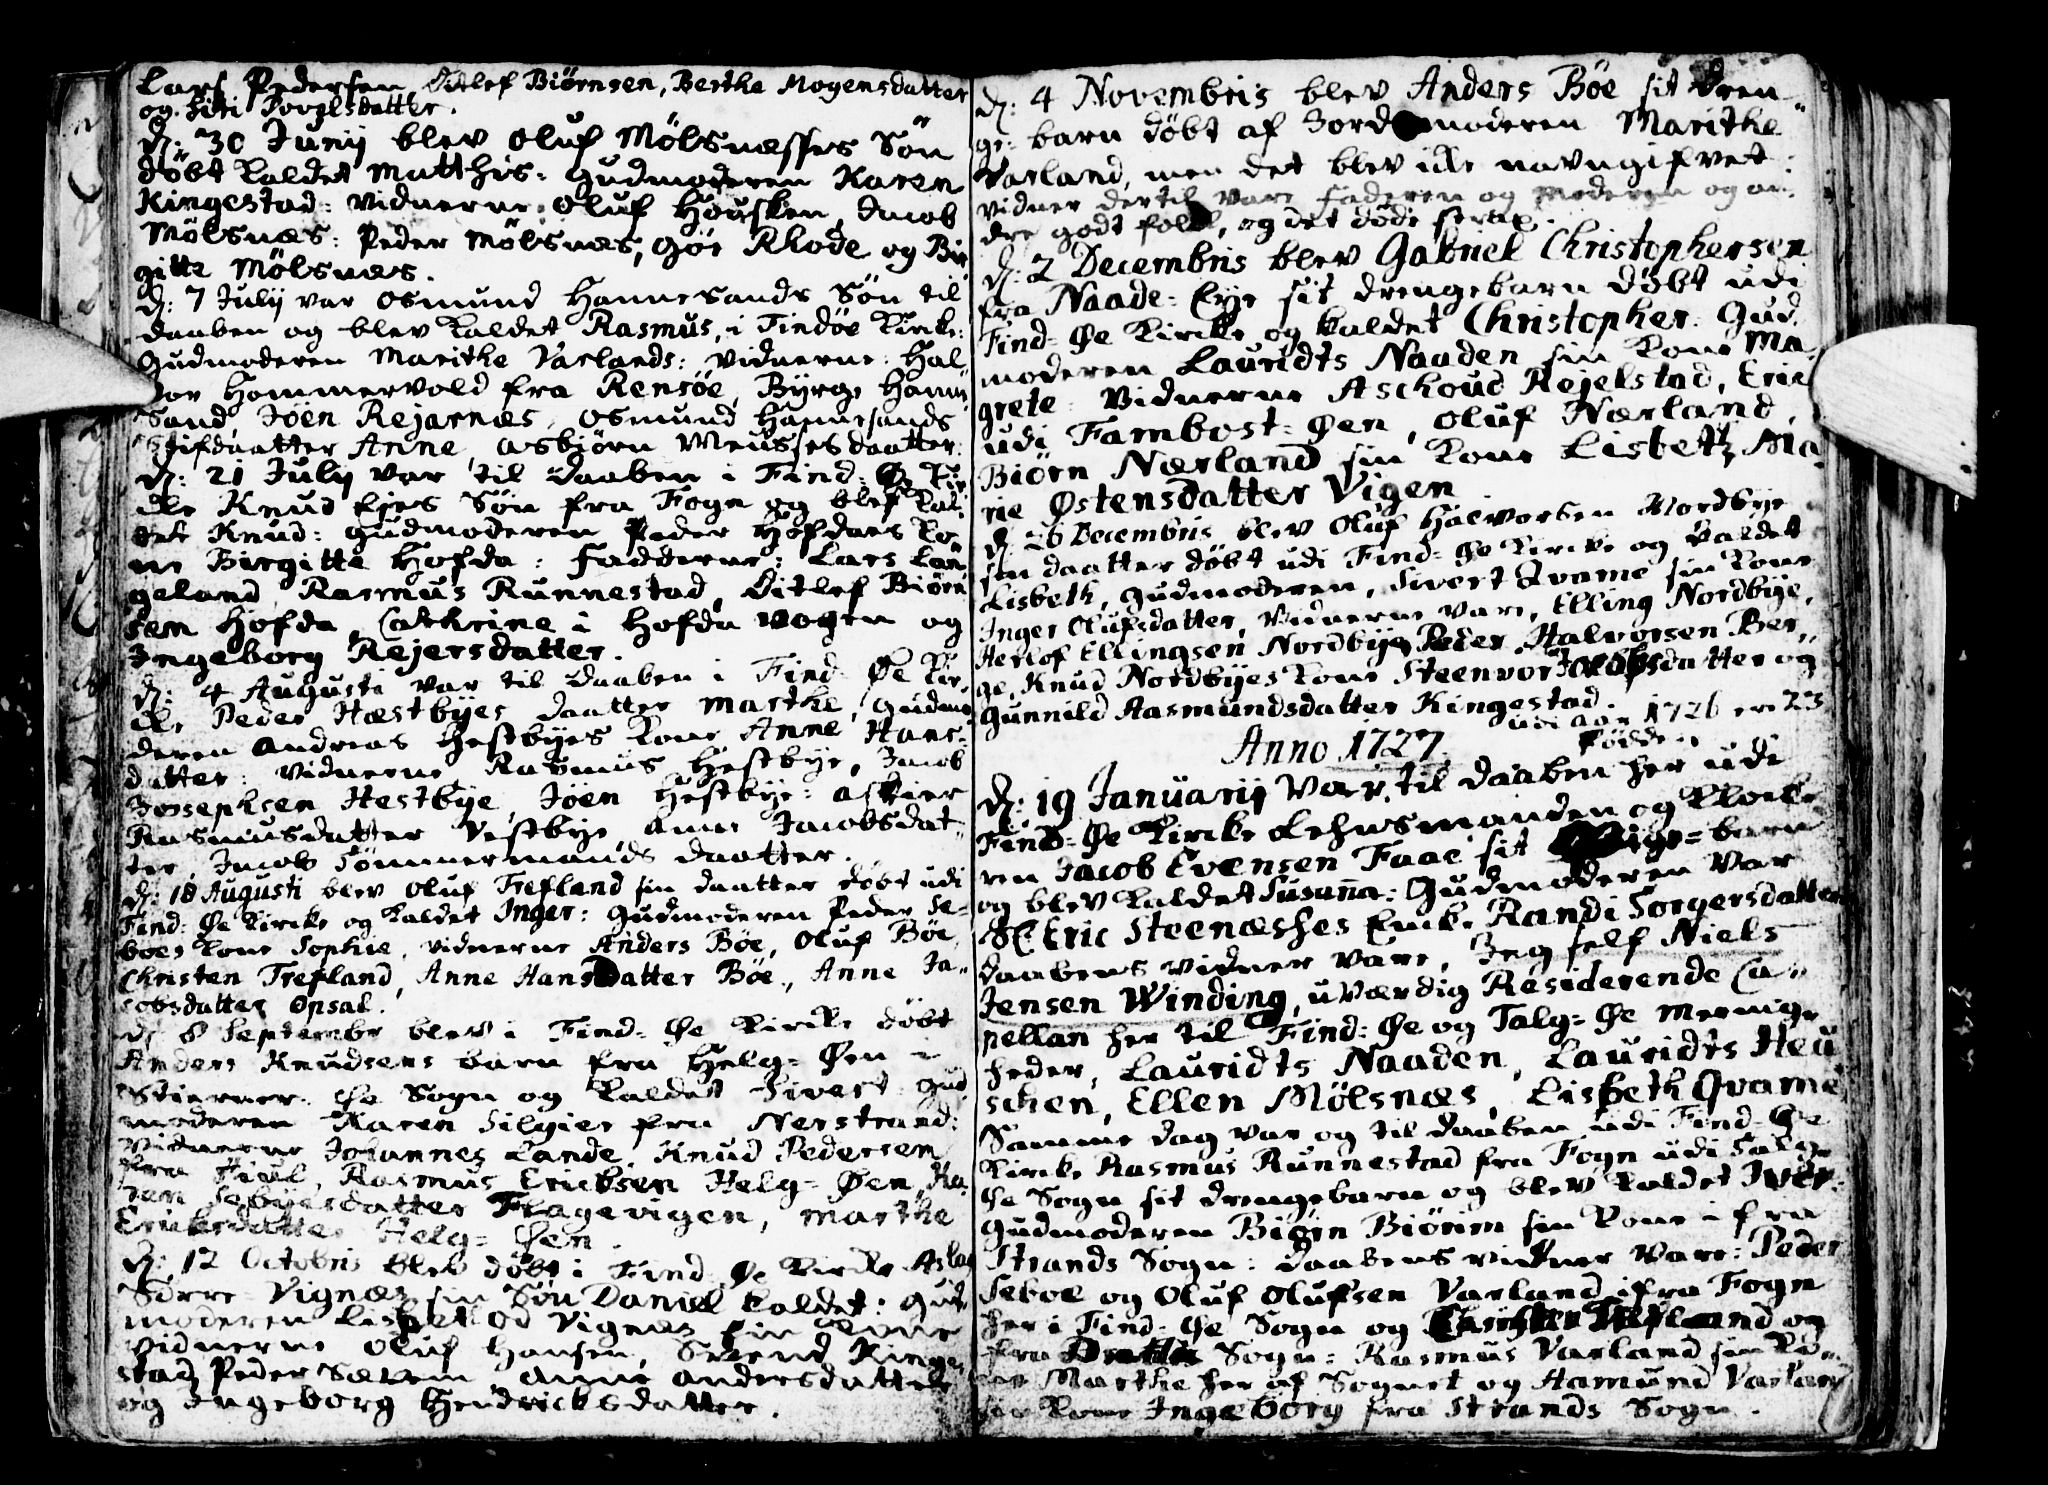 Lars Pedersen Ditlef Biörnsen, Berthe Mogensdatter
og Siri
d: 30 Junij blev Oluf Mölsnæsses Sön
döbt kaldet Matthis: Gudmoderen Karen
Kingestad: vidnerne: Oluf Housken, Jacob
Mölsnæs: Peder Mölsnæs, Göe Rhode og Bir
gitte Mölsnæs.
d: 7 Julij var Osmund Hannesands Sön til
daaben og blev kaldet Rasmus, i Findöe Kirke:
Gudmoderen Marithe Varlands: vidnerne: Hal-
vor Hommervold fra Rensöe, Byrge Hanne
Sand, Jöen Rejarnæs, Osmund Hannesands
Stifdaatter Anne, Asbjörn Meusses daatter.
d: 21 Julij var til daaben i Find-Øe Kir
cke Knud Ejes Sön fra Fogn og blef kal-
det Knud: Gudmoderen Peder Hofdaes Ko-
ne Birgitte Hofda: Fadderne: Lars Lan
geland, Rasmus Runnestad, Ditlef Biörn
sen Hofda, Cathrine i Hofda vogen og
Ingeborg Rejersdatter.
d: 4 Augusti var til daaben i Find-Øe Kir,
cke Peder Hæstbyes daatter Marthe, Gudmo
deren Andreas Hestbyes Kone Anne Hans-
datter: vidnerne Rasmus Hestbye, Jacob
Jossephsen Hestbye, Jöen Hestbye: Askier
Rasmusdatter Vestbye, Anne Jacobsdat-
ter Jacob Tömmermands daatter.
d: 18 Augusti blev Oluf Trefland sin daatter döbt udi
Find-Øe Kircke og kaldet Inger: Gudmoderen Peder Se-
boes Kone Sophie, vidnerne Anders Böe, Oluf Böe,
Christen Trefland, Anne Hansdatter Böe, Anne Ja-
cobsdatter Opsal.
d: 8 Septembr blev i Find-Øe Kircke döbt
Anders Knudsens barn fra Helg-Øen i
Stierner-Øe Sogn og kaldet Sivert Gud
moderen Karen Silgier fra Nerstrand:
Vidnerne Johannes Lande, Knud Pedersen
fra Rasmus Ericksen Helg-Øen, Ka-
ren Flagevigen, Marthe
Ericksdatter Helg-Øen.
d: 12 Octobris blev döbt i Find-Øe Kircke Aslag
Sörre-Vignæs sin Sön Daniel kaldet: Gud
moderen Lisbet Vignæs sin Kone
vidnerne Oluf Hansen, Svend Kinge-
stad Peder Anne Andersdatter
og Ingeborg Hendricksdatter.
d: 4 Novembris blev Anders Böe sit dren-
ge-barn döbt af Jordemoderen Marithe
Varland, men det blev icke navngifvet:
vidner dertil vare faderen og Moderen og an-
dre godt folck, og det döde strax.
d: 2 Decembris blev Gabriel Christophersen
fra Naade-Eye sit drengebarn döbt udi
Find-Øe Kircke og kaldet Christopher. Gud
moderen Lauridts Naaden sin Kone Ma-
grete: Vidnerne Aschoud Rejelstad, Eric
udi Fambost-Øen, Oluf Nærland,
Biörn Nærland sin Kone Lisbeth, Ma-
rie Østensdatter Vigen
d: 26 Decembris blev Oluf Halvorsen Nordbye
sin daatter döbt udi Find-Øe Kircke og kaldet
Lisbeth, gudmoderen, Sivert Qvame sin Kone
Inger Olufsdatter, Vidnerne vare, Elling Nordbye,
Herlof Ellingsen Nordbye, Peder Halvorsen Ber,,
ge, Knud Nordbyes Kone Steenvor Jacobsdatter og
Gunnild Aasmundsdatter Kingestad.
udi aar 1726 er 23
födde
Anno 1727.
d: 19 Januarij Var til daaben her udi
Find-Øe Kircke Lehnsmanden og Klocke
ren Jacob Evensen Faae sit Pige-barn
og blev kaldet Susanna: Gudmoderen Var
Sl Eric Steenæsses Enke Randi Torgersdatter
daabens vidner vare, Jeg self Niels
Jensen Winding, uværdig Residerende Ca-
pellan her til Find-Øe og Talg-Øe Meenig-
heder, Lauridts Naaden, Lauridts Heu
schen, Ellen Mölsnæs, Lisbeth Qvame
Samme dag Var og til daaben udi Find-Øe
Kircke Rasmus Runnestad fra Fogn udi Talg-
Øe Sogn sit drengebarn og blev kaldet Iver:
Gudmoderen Biörn Biörim sin Kone i fra
Strands Sogn: daabens vidner vare: Peder
Seboe og Oluf Olufsen Varland ifra Fogn
her i Find-Øe Sogn og Christen Trefland og
fra Sogn: Rasmus Varland sin Ko-
ne Marthe her af Sognet og Aamund Varland
sin Kone Ingeborg fra Strands Sogn.